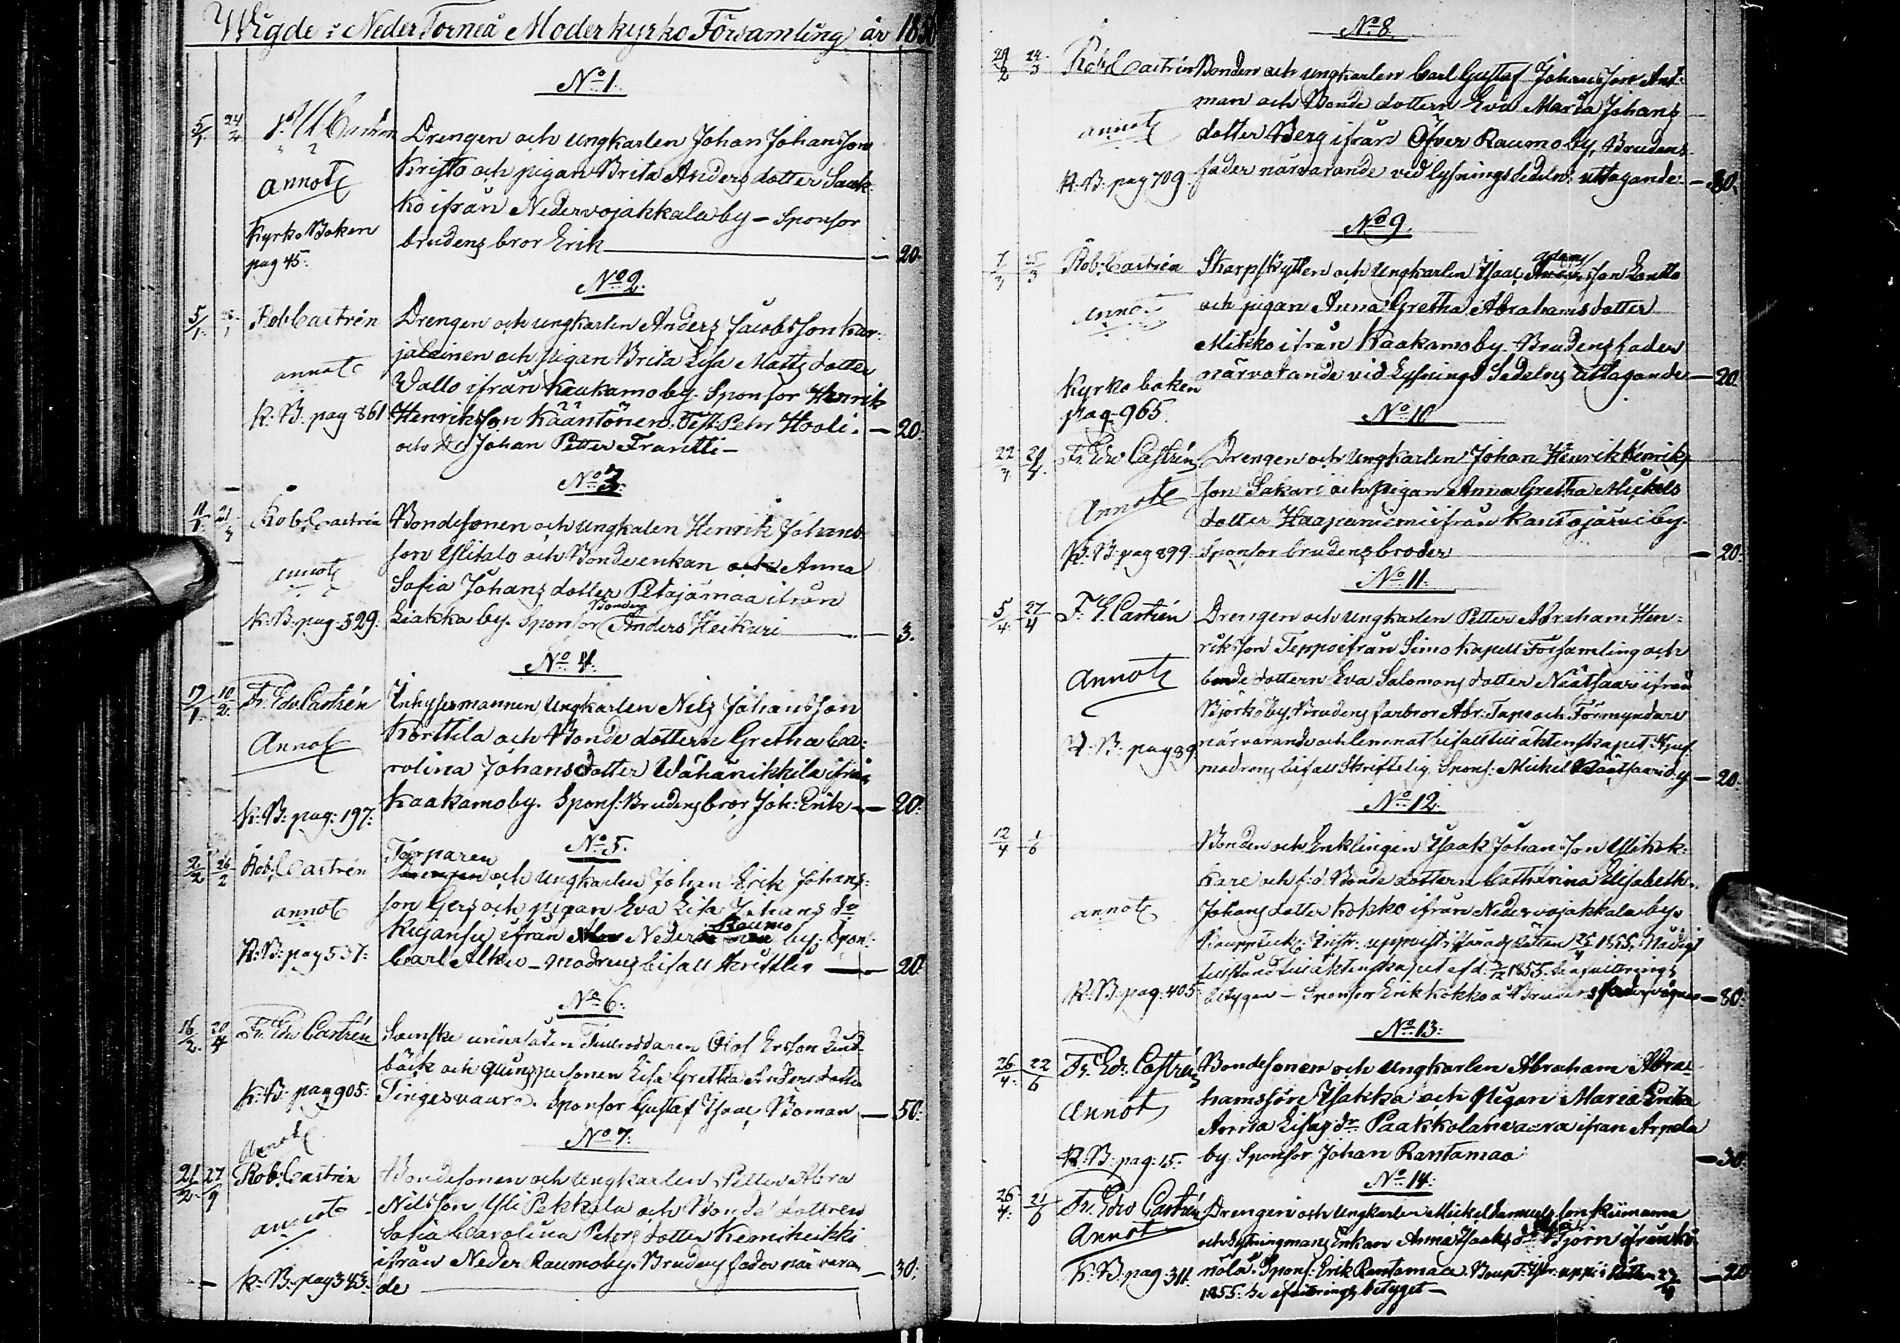 Wigde i Neder Torneå Moderkyrko Församling år 18
No 1.
5/1 24/2
annote
Drengen och Ungkarlen Johan Johansson
Kristo och pigan Brita Anders dotter Saak-
ko ifrån Nedervojakkala by - Sponsor
brudens bror Erik — 20.
Kyrko Boken
pag 45.
No 2.
5/1
Rob Castrén
annote
K. B. pag 861
Drengen och Ungkarlen Anders Jacobsson Kar-
jalainen och pigan Brita Lisa Matts dotter
Wallo ifrån Kaakamo by. Sponsor Henrik
Henriksson Kääntönen. Test. Petr Hooli. — 20.
och Johan Petter Frantti -
No 3.
11/1 21/3
Rob Castrén
annote
K. B. pag. 529.
Bondesonen och Ungkalen Henrik Johans
son Ylitalo och Bonde enkan Anna
Sofia Johans dotter Petäjämaa ifrån
Liakka by. Sponsor Bonden Anders Heikuri — 3.
No 4.
19/1 10/2
Fr. Edv Castrén
Annot
K: B: pag: 197:
Inhysesmannen Ungkarlen Nils Johansson
Korttila och Bonde dottern Gretha Ca-
rolina Johans dotter Wähänikkilä ifrån
Kaakamo by. Spons: Brudens bror Joh: Erik — 20.
No 5.
2/2 26/2
Rob Castrén
annote
K: B: pag 537:
Torparen
och Ungkarlen Johan Erik Johans-
son Gers och pigan Eva Lisa Johans do
ifrån Neder Raumo by. Spon:
Carl Alkio - modrens bifall skriftlig — 20.
No 6.
16/2 20/4
Fr. Edv Castrén
K: B: pag 905:
Annote
Svenske undersåten Olof Ersson Lind-
bäck och qvinspersonen Lisa Gretha Anders dotter
Tingesvaara. Sponsor Gustaf Isac Boman — 50.
No 7.
21/2 27/9
Rob. Castrén
annote
K: B: pag 343:
Bondesonen och Ungkarlen Petter Abra
Nilsson Yli Pekkala och Bonde dottren
Sofia Carolina Peters dotter Kemiheikki
ifrån Neder Raumo by. Brudens fader när varan — 30.
de
No 8.
24/2 24/3
Rob Castrén
annote
K: B: pag 709.
Bonden och Ungkarlen Carl Gustaf Johansson Ant-
man och Bonde dottern Eva Maria Johans
dotter Berg ifrån Öfver Raumo by, Brudens
fader närvarande ved lysningssedelns uttagande — 30.
No 9.
7/3 25/3
Rob. Castrén
annot
Kyrko boken
pag. 965.
Skarpskytten och Ungkarlen Isac Adamsson Lantto
och pigan Anna Gretha Abrahams dotter
Mikko ifrån Kaakamo by. Brudens fader
närvarande vid Lysnings Sedelns uttagande — 20.
No 10.
22/3 21/4
Fr. Edv Castrén
Annote
K: B: pag 899
Drengen och Ungkarlen Johan Henrik Henriks
son Sakari och pigan Anna Gretha Mickels
dotter Haapaniemi ifrån Kantojärvi by.
Sponsor brudens broder — 20.
No 11.
5/4 27/4
F. E. Castrén
Annote
K: B: pag 39
Drengen och Ungkarlen Petter Abraham Hen-
riksson Teppo ifrån Simo Kapell Församling och
bonde dottern Eva Salomons dotter Näätsaari ifrån
Björkö by, Brudens farbror Abr: Tape och Förmyndare
närvarande och lemnat bifall till äktenskapet. Styf
modrens bifall skriftelig. Spons: Mickel Näätsaari — 20.
No 12.
12/4 1/6
annote
K: B: pag: 405.
Bonden och Enklingen Isaak Johansson Ylikok-
kare och f.d. Bonde dottern Catharina Elisabeth
Johans dotter Kokko ifrån Nedervojakkala by.
1855. Nådigt
tillstånd till äktenskapet af d. 1855.
betygen - Sponsor Erik Kokko å Brudens faders vägnar — 80.
No 13.
26/4 22/6
Fr. Edv. Castrén
Annot
K: B: pag: 15:
Bondesonen och Ungkarlen Abraham Abra-
hamsson Isakka och Pigan Maria Greta
Anna Lisas dr Paakkolanvaara ifrån Arpela
by. Sponsor Johan Rantamaa — 30.
No 14.
26/4 21/6
Fr. Edv Castrén
Annot
K: B: pag 311.
Drengen och Ungkarlen Mickel Samuels son Kiimama
och Enkan Anna Isaks dr Björn ifrån
Spons: Erik Rantamaa.
1855. Se afvittrings betyget — 20